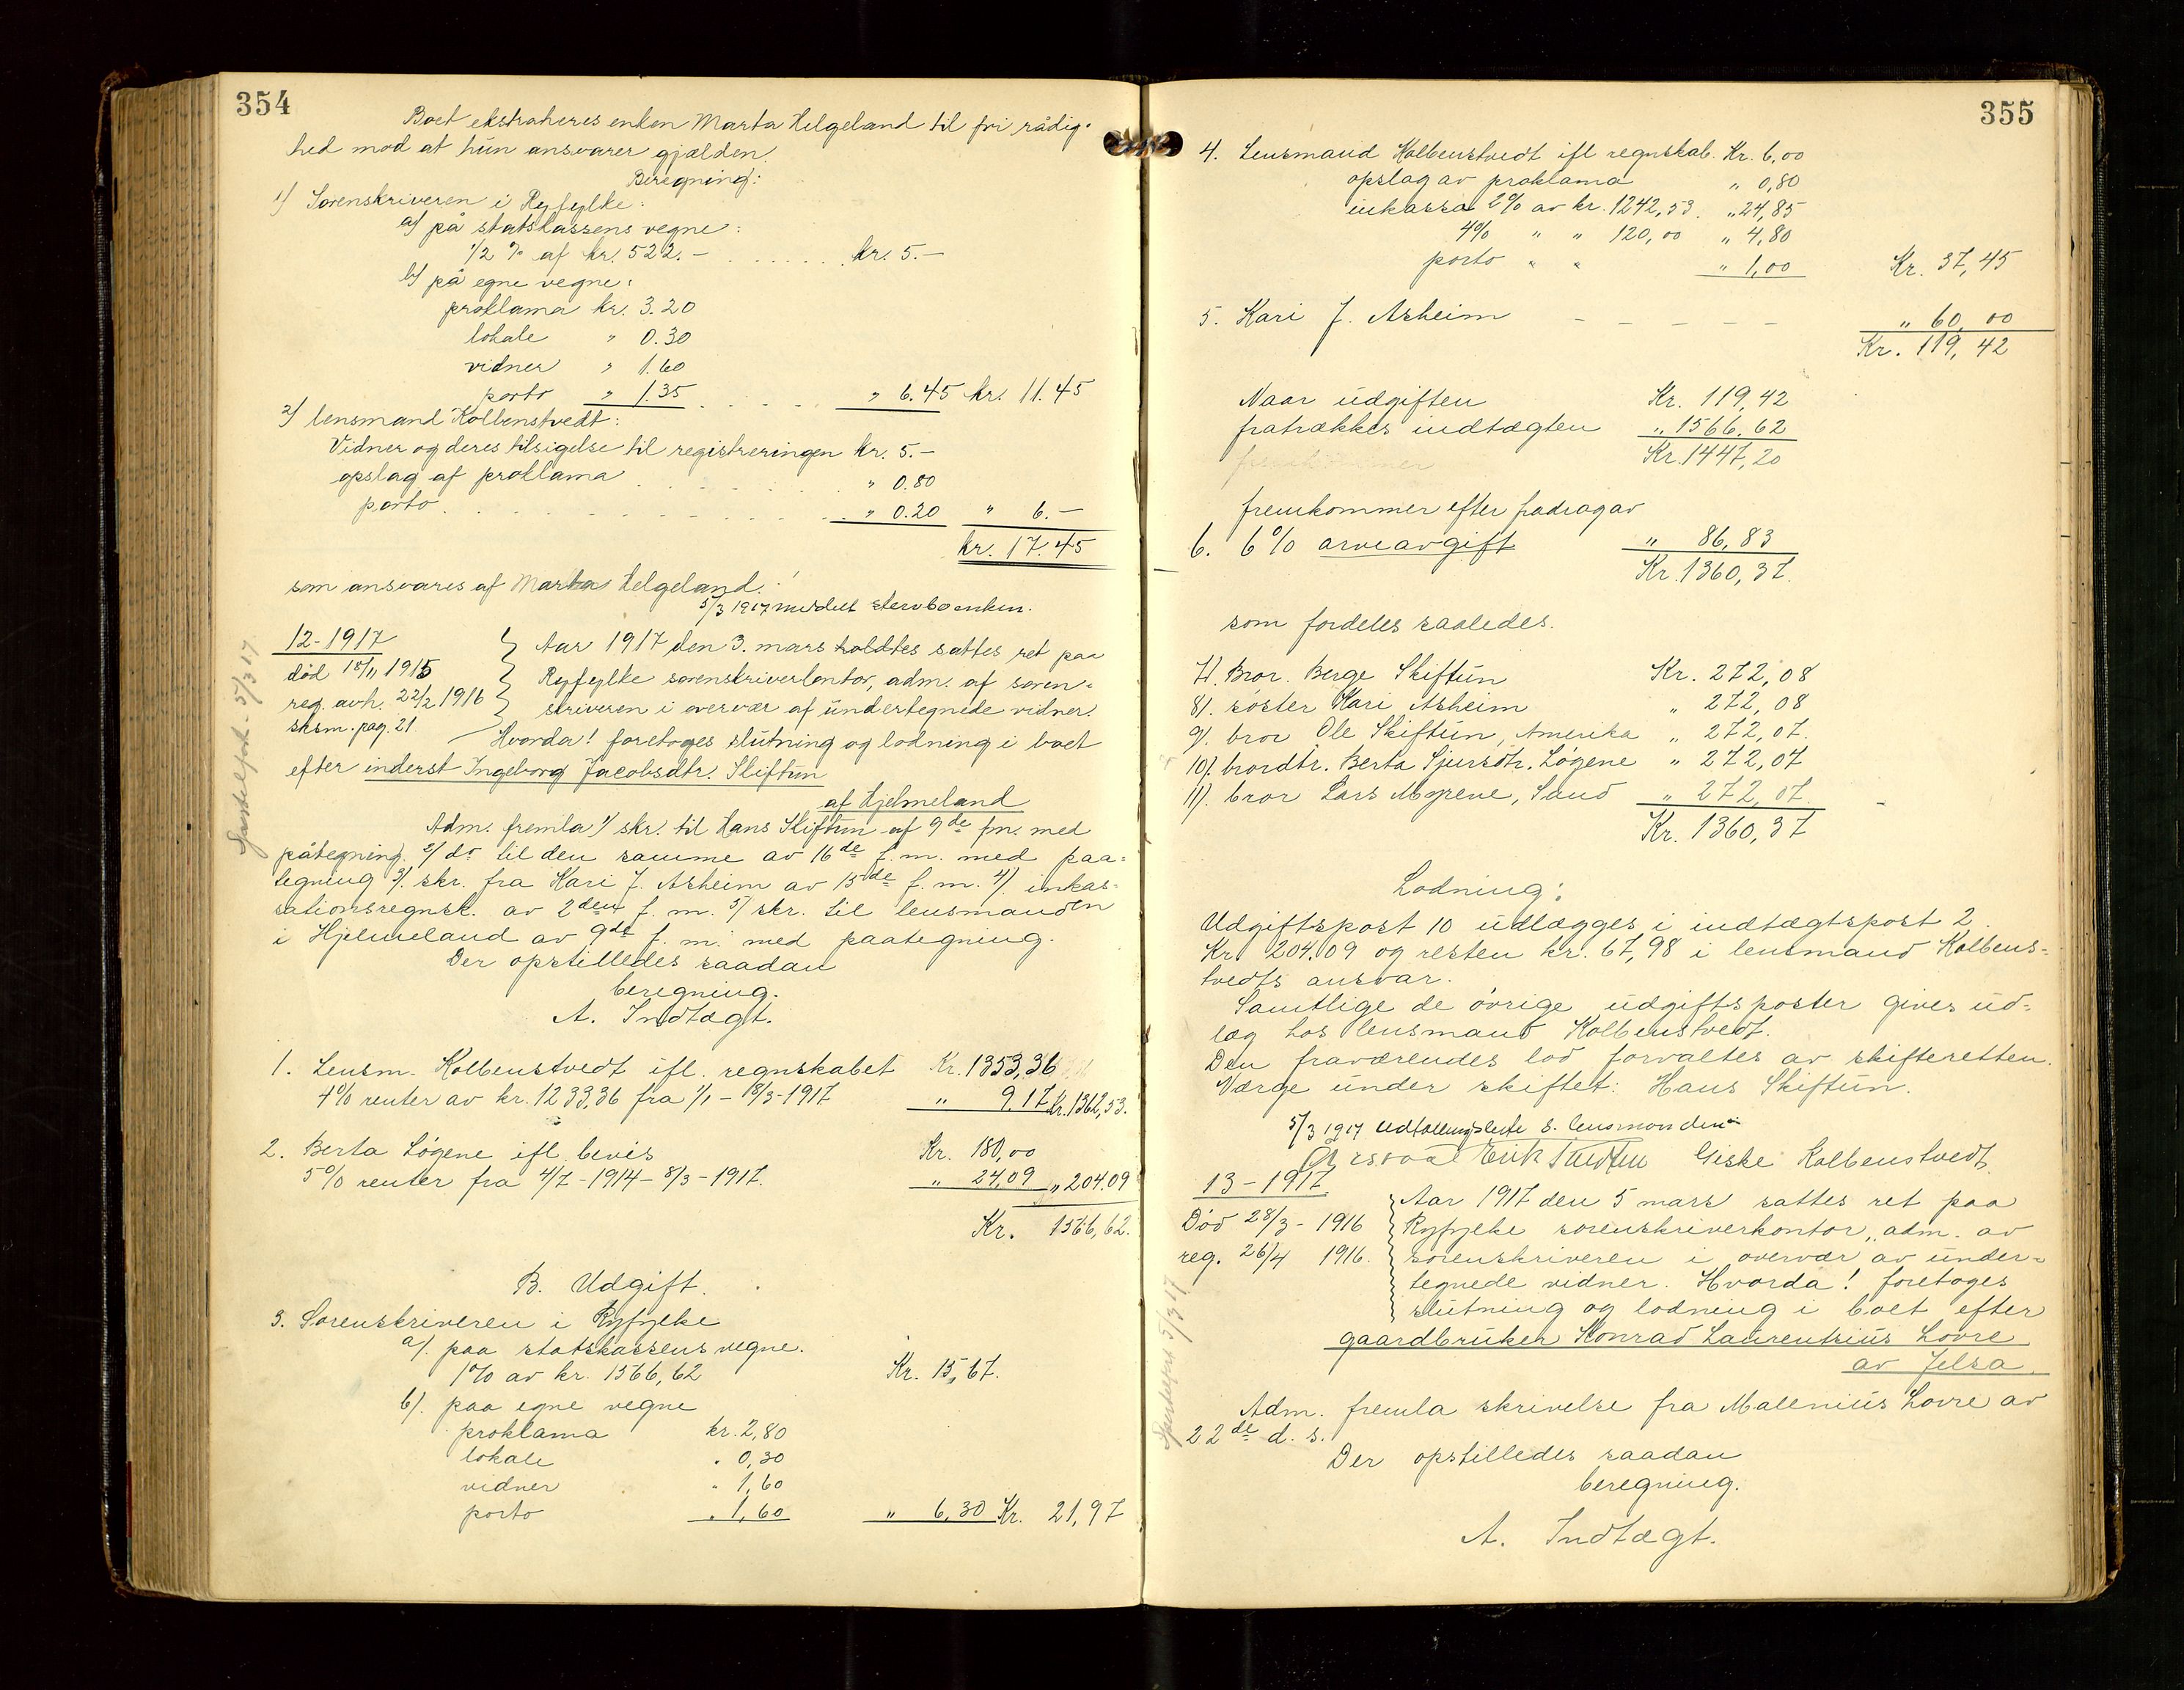 354
Boet ekstraheres enken Marta Helgeland til fri rådig-
hed mod at hun ansvarer gjælden.
Beregning:
1) Sorenskriveren i Ryfylke:
a) på statskassens vegne:
1/2 % af kr. 522.- . . . . . . kr. 5.-
b) på egne vegne:
proklama kr. 3.20
lokale " 0.30
vidner " 1.60
porto " 1.35 . . . . . " 6.45 kr. 11.45
2) lensmand Kolbenstvedt:
Vidner og deres tilsigelse til registreringen kr. 5.-
opslag af proklama . . . . . " 0.80
porto . . . . . " 0.20 " 6.-
kr. 17.45
som ansvares af Marta Helgeland.
5/3 1917 meddelt stervboenken.
12-1917
død 18/11 1915
reg. avh. 22/2 1916
sksm. pag. 21
Aar 1917 den 3. mars holdtes sattes ret paa
Ryfylke sorenskriverkontor, adm. af soren-
skriveren i overvær af undertegnede vidner.
Hvorda! foretoges slutning og lodning i boet
efter inderst Ingeborg Jacobsdtr. Skiftun
af Hjelmeland
Adm. fremla 1/ skr. til Hans Skiftun af 9de fm. med
påtegning. 2/ do til den samme av 16de f. m. med paa-
tegning 3/. skr. fra Kari J. Asheim av 15de f. m. 4/. inkas-
sationsregnsk. av 2den f. m. 5/ skr. til lensmanden
i Hjelmeland av 9de f. m. med paategning.
Der opstilledes saadan
beregning.
A. Indtægt.
1. Lensm. Kolbenstvedt ifl. regnskabet Kr. 1353,36
4% renter av kr. 1233,36 fra 1/1 - 18/3-1917 " 9,17 Kr. 1362,53.
2. Berta Løgene ifl. bevis Kr. 180,00
5% renter fra 4/7-1914 - 8/3-1917. " 24,09 " 204.09
Kr. 1566,62.
B. Udgift.
3. Sorenskriveren i Ryfylke
a). paa statskassens vegne.
1% av kr. 1566,62 Kr. 15,67.
b). paa egne vegne
proklama kr. 2,80
lokale " 0,30
vidner " 1,60
porto " 1,60 " 6,30 Kr. 21,97
355
4. Lensmand Kolbenstvedt ifl regnskab. Kr. 6,00
opslag av proklama " 0,80
inkassa 2% av kr. 1242,53. " 24,85
4% " " 120,00 " 4,80
porto " " " 1,00 Kr. 37,45
5. Kari J. Asheim - - - - - " 60,00
Kr. 119,42
Naar udgiften Kr. 119,42
fratrækkes indtægten " 1566,62
Kr. 1447,20
fremkommer efter fradrag av
6. 6% arveavgift " 86,83
Kr. 1360,37.
som fordeles saaledes.
7). Bror Berge Skiftun Kr. 272,08
8). søster Kari Asheim " 272,08
9). bror Ole Skiftun, Amerika " 272,07.
10). brordtr. Berta Sjursdtr. Løgene " 272,07
11). bror Lars Mærene, Sand " 272,07.
Kr. 1360,37
Lodning:
Udgiftspost 10 udlægges i indtægtspost 2
Kr. 204.09 og resten kr. 67,98 i lensmand Kolbens-
tvedts ansvar.
Samtlige de øvrige udgiftsposter gives ud-
læg hos lensmand Kolbenstvedt.
Den fraværendes lod forvaltes av skifteretten.
Værge under skiftet: Hans Skiftun.
5/3 1917 Udtællingsliste s. lensmanden
Erik Tuedten Giske Kolbenstvedt.
13-1917
Død 28/3-1916
reg. 26/4 1916.
Aar 1917 den 5 mars sattes ret paa
Ryfylke sorenskriverkontor, adm. av
sorenskriveren i overvær av under-
tegnede vidner. Hvorda! foretoges
slutning og lodning i boet efter
gaardbruker Konrad Laurentsius Lovre
av Jelsa.
Adm. fremla skrivelse fra Malenius Lovre av
22de d. s.
Der opstilledes saadan
beregning.
A. Indtægt.